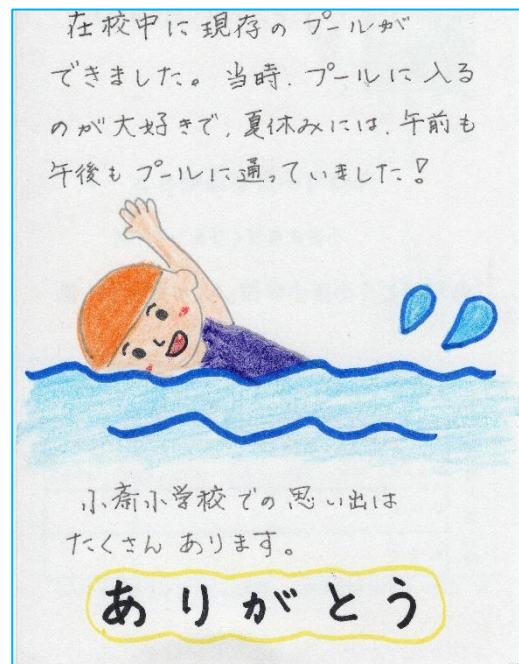 在校中に現存のプールが
できました。当時、プールに入る
のが大好きで、夏休みには、午前も
午後もプールに通っていました!
小斎小学校での思い出は
たくさんあります。
ありがとう